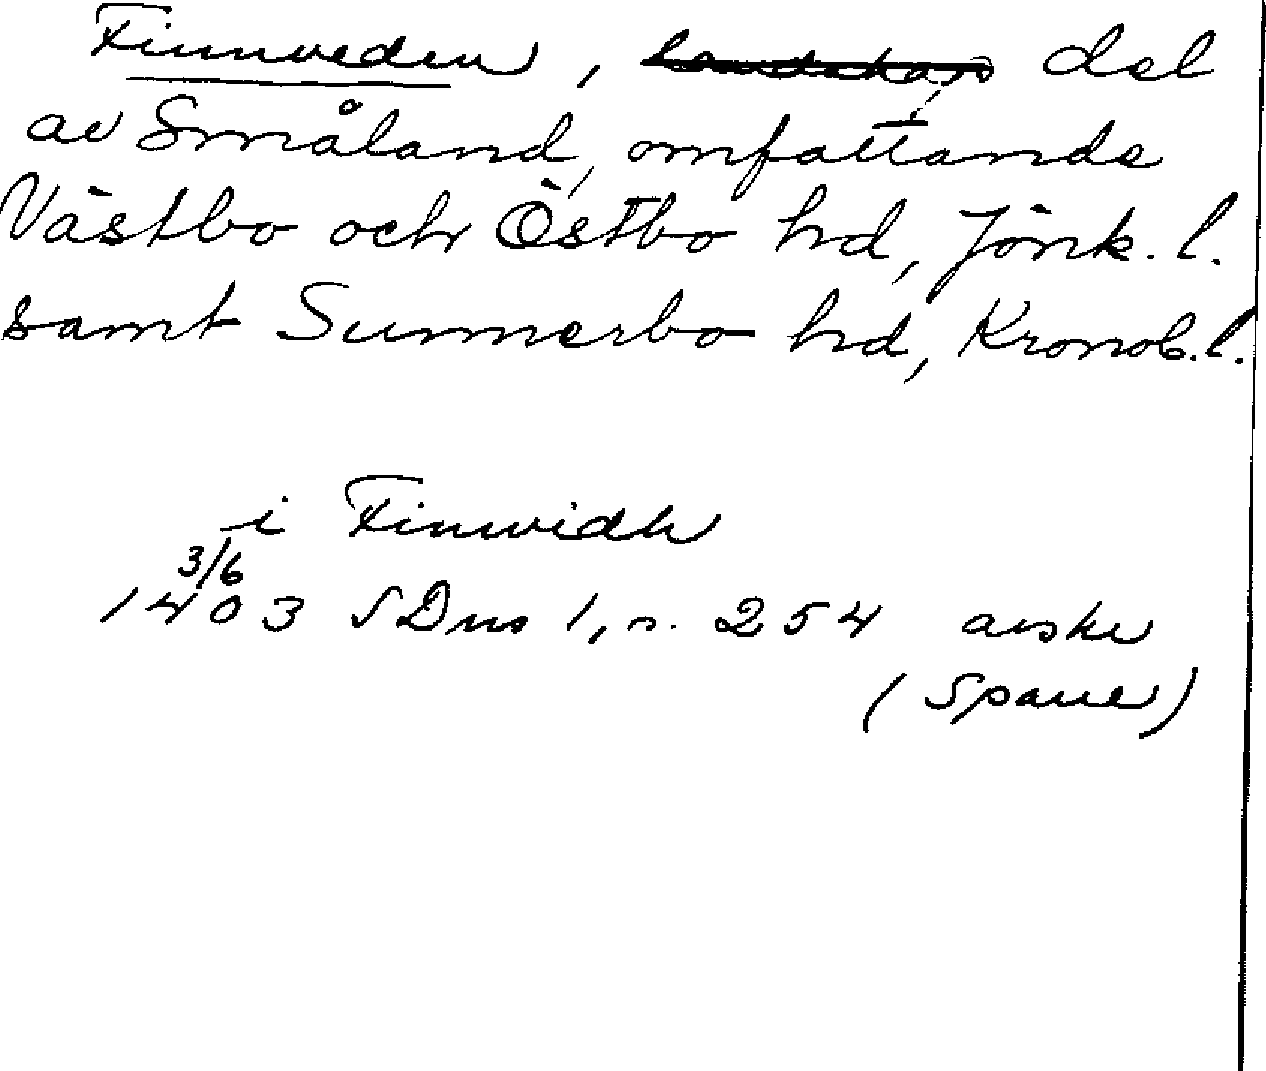 Finnveden, landskap del
av Småland, omfattande
Västbo och Östbo hd, Jönk. l.
samt Sunnerbo hd, Kronob. l.
i Finwidh
3/6
1403 SDns 1, s. 254 avskr
(Spaue)